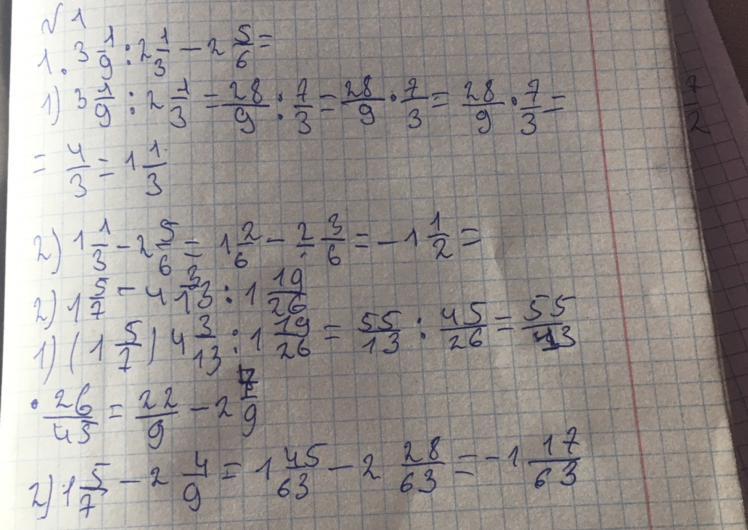 √ 1
1. 3 1/9 : 2 1/3 - 2 5/6 =
1) 3 1/9 : 2 1/3 = 28/9 : 7/3 = 28/9 · 7/3 = 28/9 · 7/3 =
7/2
= 4/3 = 1 1/3
2) 1 1/3 - 2 5/6 = 1 2/6 - 2 3/6 = -1 1/2 =
2) 1 5/7 - 4 3/13 : 1 19/26
1) (1 5/7) 4 3/13 : 1 19/26 = 55/13 : 45/26 = 55/13
· 26/45 = 22/9 - 2 4/9
2) 1 5/7 - 2 4/9 = 1 45/63 - 2 28/63 = -1 17/63